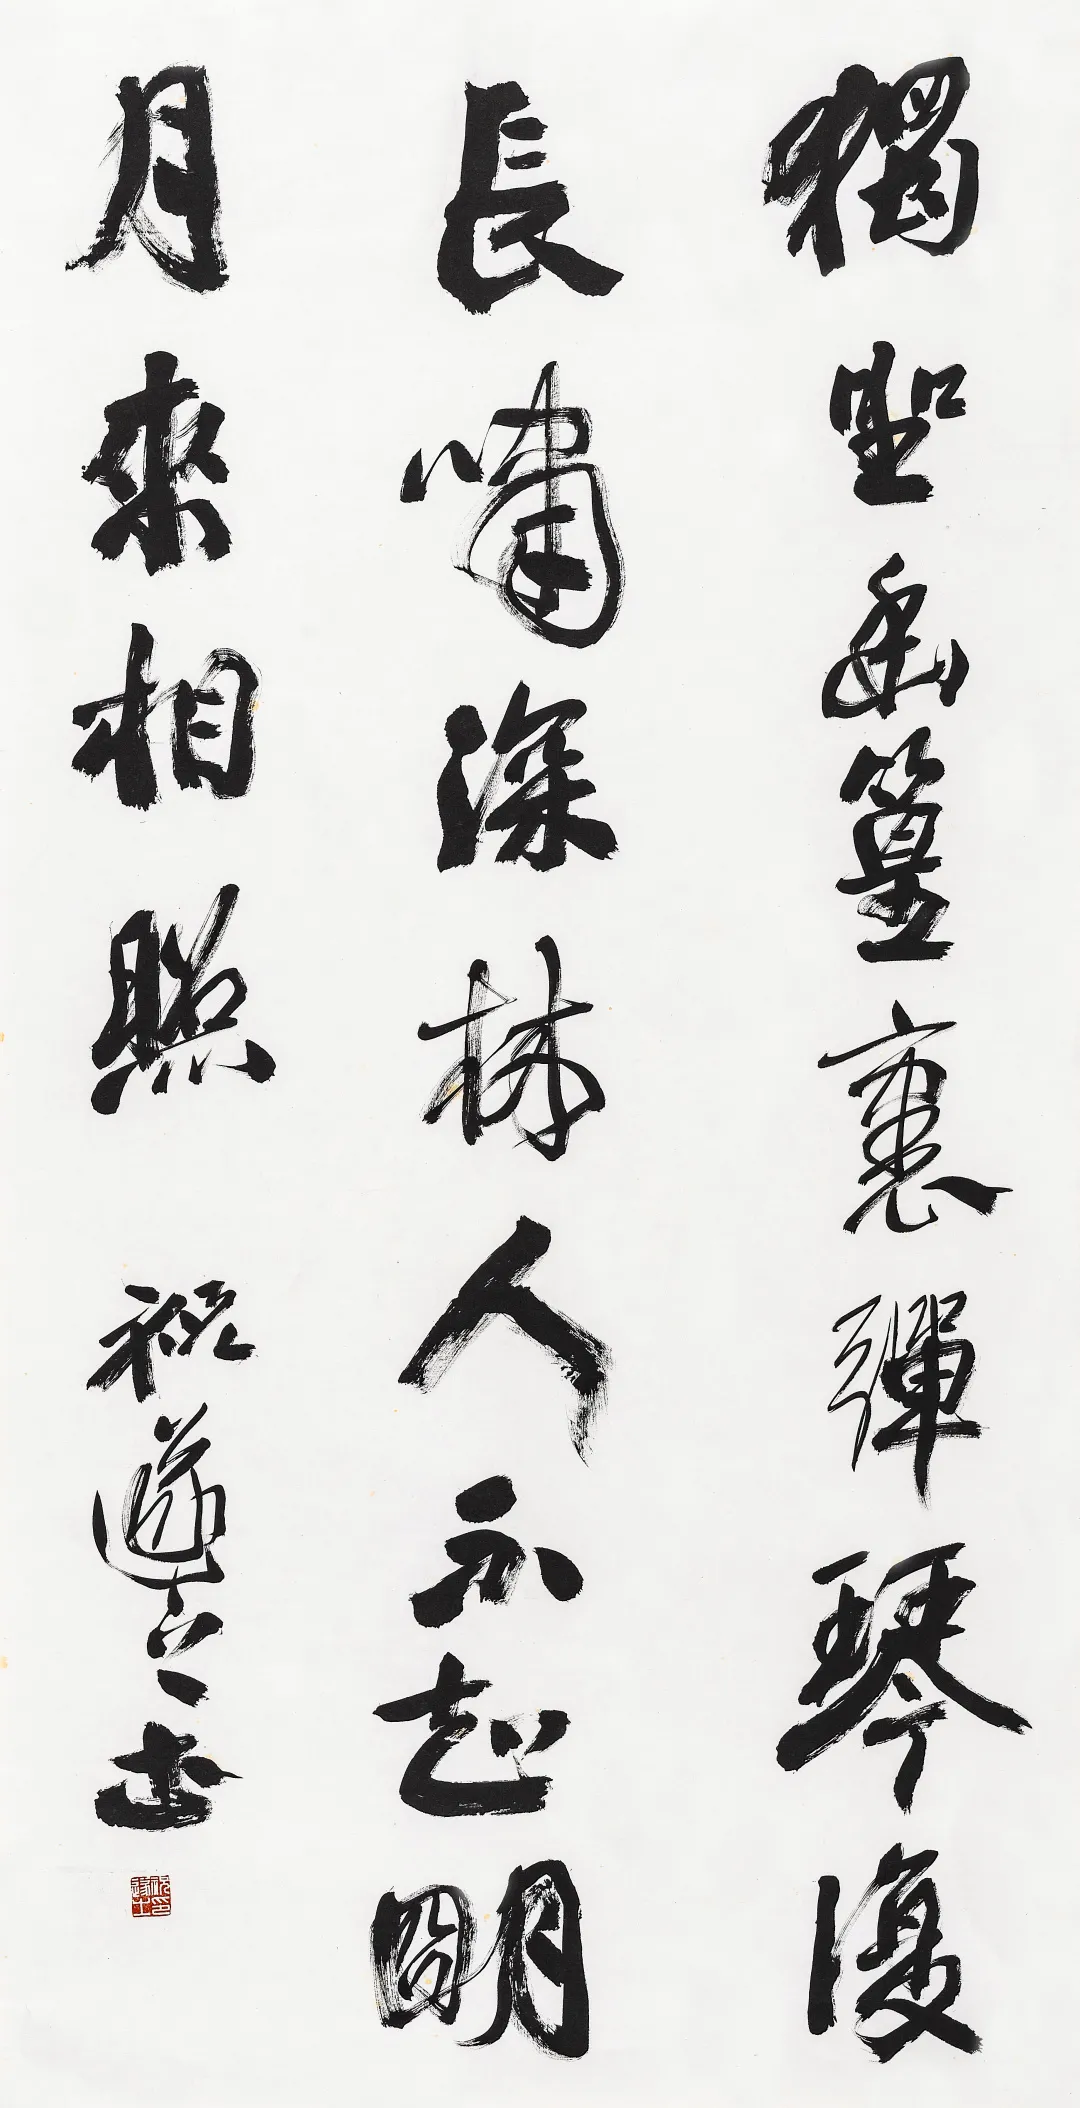 獨坐幽篁裏彈琴復
長嘯深林人不知明
月來相照 祝遂之書